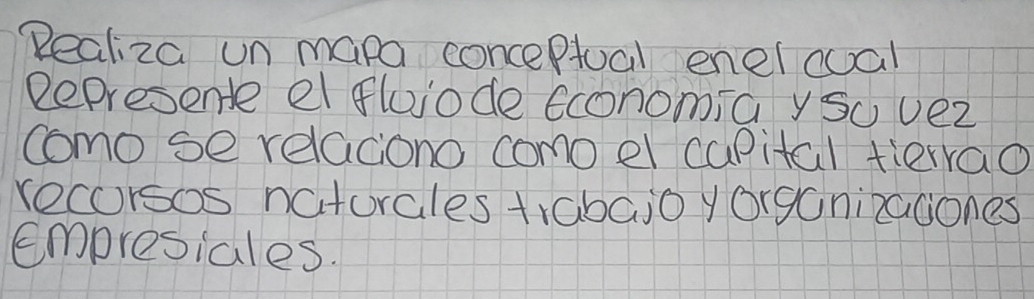 Realiza un mapa conceptual enel cual
Represente el flujo de Economía y su vez
como se relaciona como el capital tierra o
recursos naturales trabajo y organizaciones
Empresiales.